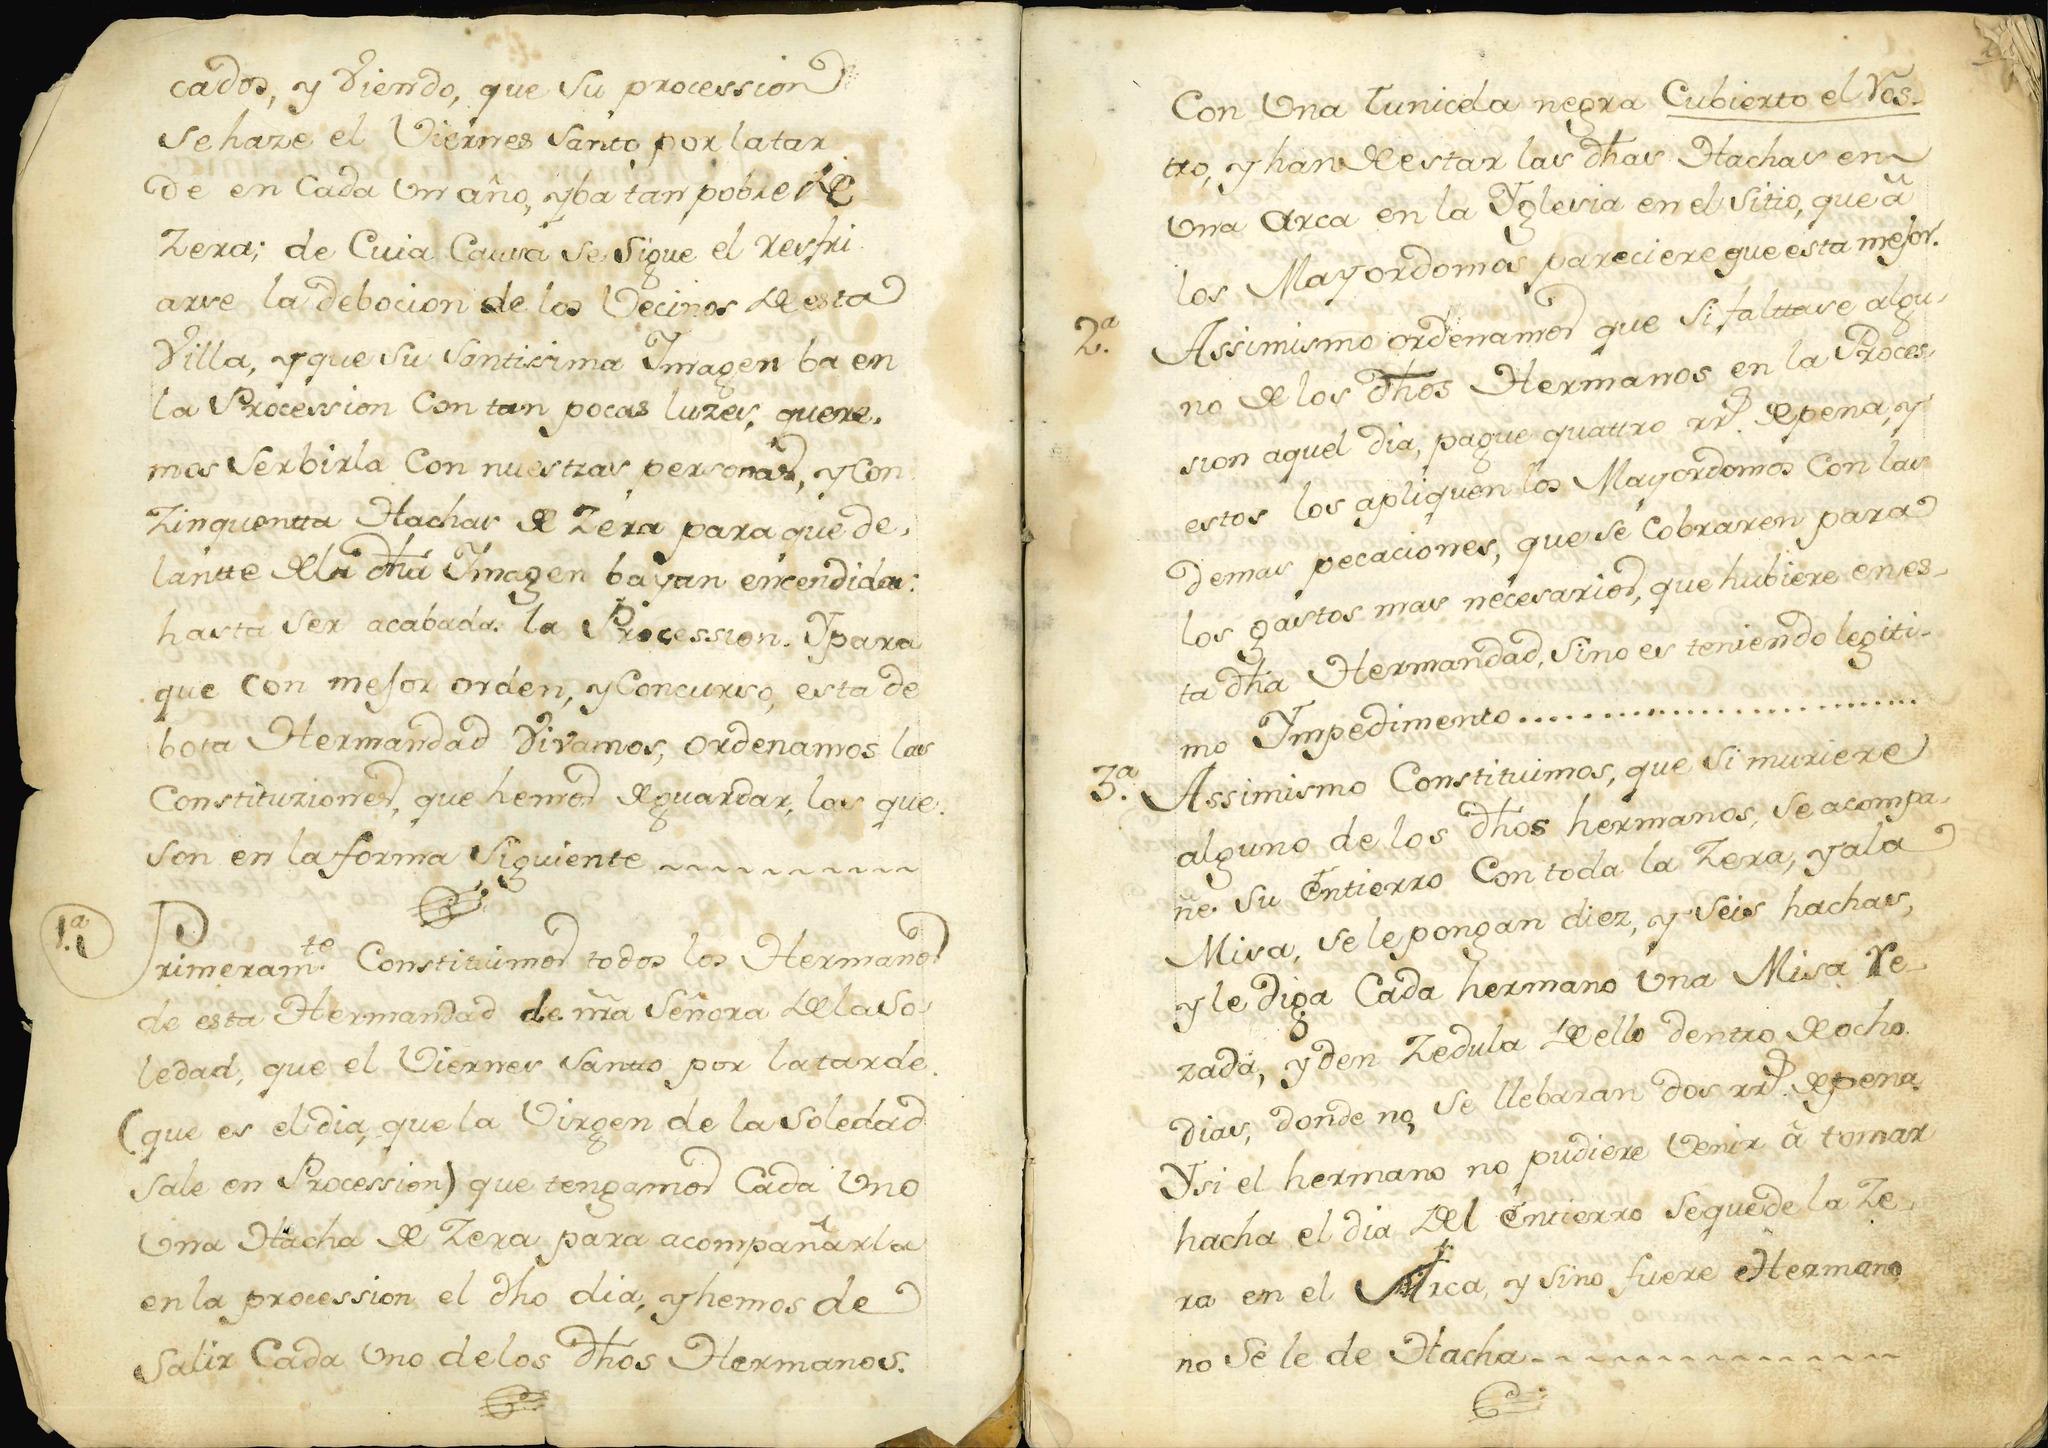 cados, y Viendo, que su procession
se haze el Viernes santo por la tar
de en Cada un año, y ba tan pobre de
Zera; de Cuia Causa se sigue el resfri
arse la debocion de los Vecinos de esta
Villa, y que su santissima Ymagen ba en
la Procession Con tan pocas luzes, quere.
mos Serbirla Con nuestras personas, y con
Zinquentta Hachas de Zera para que de.
lantte de la dha Ymagen bayan encendidas
hasta ser acabada la Procession. Y para
que con mejor orden, y Concurso, esta de
bota Hermandad Vivamos, ordenamos las
Constituziones, que hemos de guardar, las que.
son en la forma siguiente
1.ª Primeram.te Constituimos todos los Hermanos
de esta Hermandad de nra Señora de la So-
ledad, que el Viernes Santto por la tarde.
(que es el dia, que la Virgen de la Soledad
sale en Procession) que tengamos Cada Uno
Una Hacha de Zera para acompañarla
en la procession el dho dia, y hemos de
Salir Cada Uno de los dhos Hermanos.
Con Una tunicela negra Cubierto el Ros-
tro, y han de estar las dhas Hachas en
Una Arca en la Yglesia en el sitio, que â
los Mayordomos pareciere que esta mejor.
2.ª Assimismo ordenamos que si falttase algu-
no de los dhos Hermanos en la Proces-
sion aquel dia, pague quattro rr.s de pena, y
estos los apliquen los Mayordomos Con las
demas pecaciones, que se Cobraren para
los gastos mas necesarios, que hubiere en es-
ta dha Hermandad, Sino es teniendo legiti-
mo Ympedimento
3.ª Assimismo Constituimos, que si muriere
alguno de los dhos hermanos, se acompa-
ñe su Entierro Con toda la Zera, y a la
Misa, se le pongan diez, y seis hachas,
y le diga Cada hermano Una Misa Re-
zada, y den Zedula de ello dentro de ocho
dias, donde no, se llebaran dos rr.s de pena
Y si el hermano no pudiere Venir â tomar
hacha el dia del Entierro se quede la Ze-
ra en el Arca, y sino fuere Hermano
no se le de Hacha